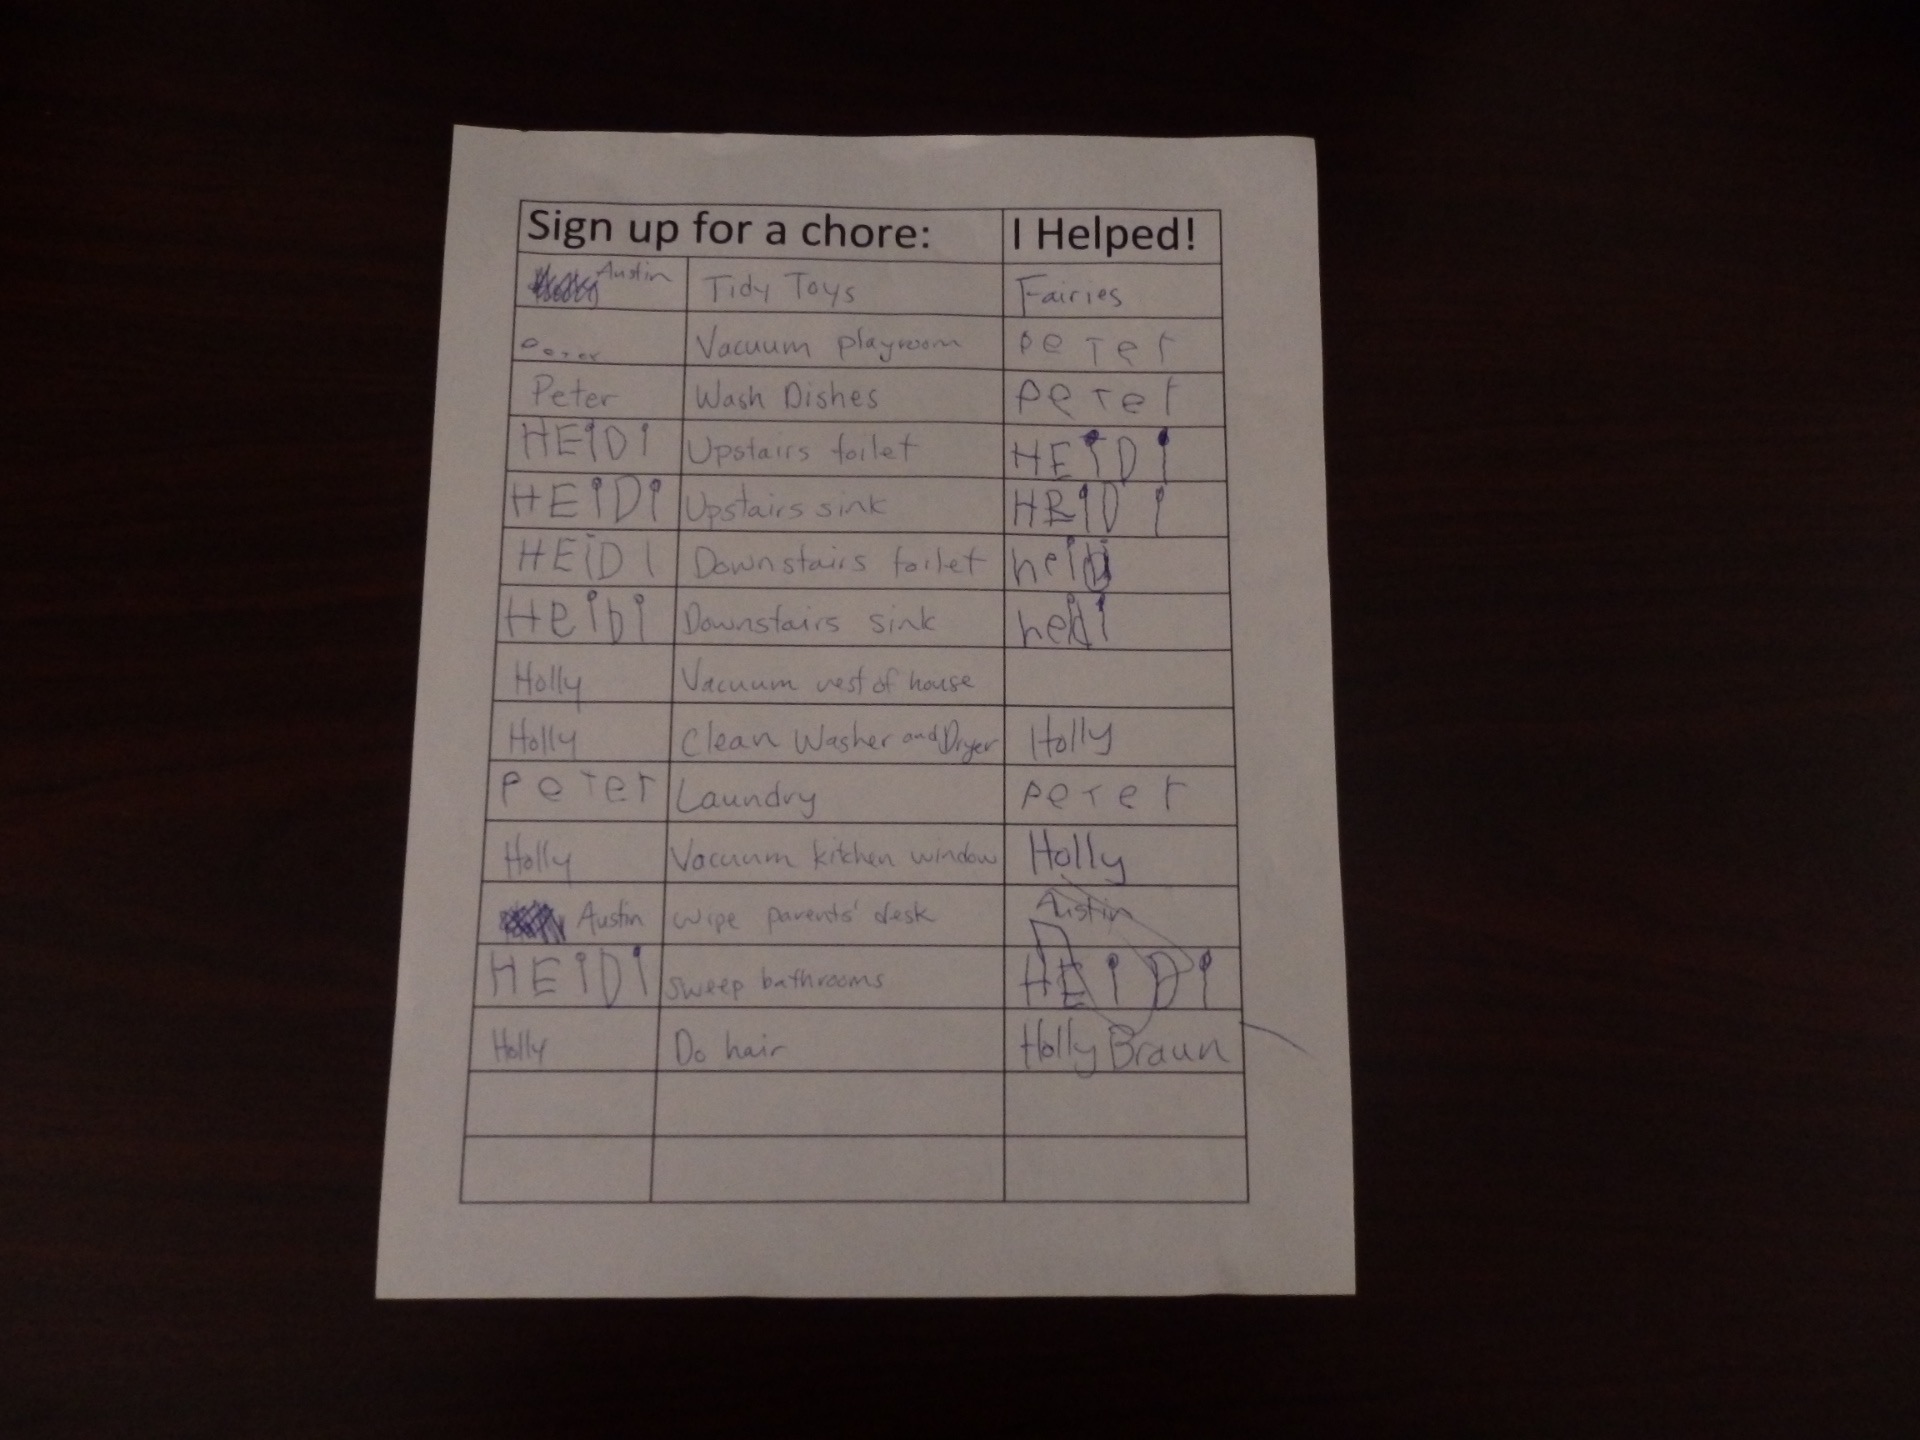 Sign up for a chore: I Helped!
Austin Tidy Toys Fairies
Peter Vacuum playroom PeTer
Peter Wash Dishes PeTer
HEiDi Upstairs toilet HEiDi
HEiDi Upstairs sink HEiDi
HEiDI Downstairs toilet heidi
HeiDi Downstairs sink heidi
Holly Vacuum rest of house
Holly Clean Washer and Dryer Holly
PeTer Laundry PeTer
Holly Vacuum kitchen window Holly
Austin Wipe parents' desk Austin
HEiDi sweep bathrooms HEiDi
Holly Do hair Holly Braun